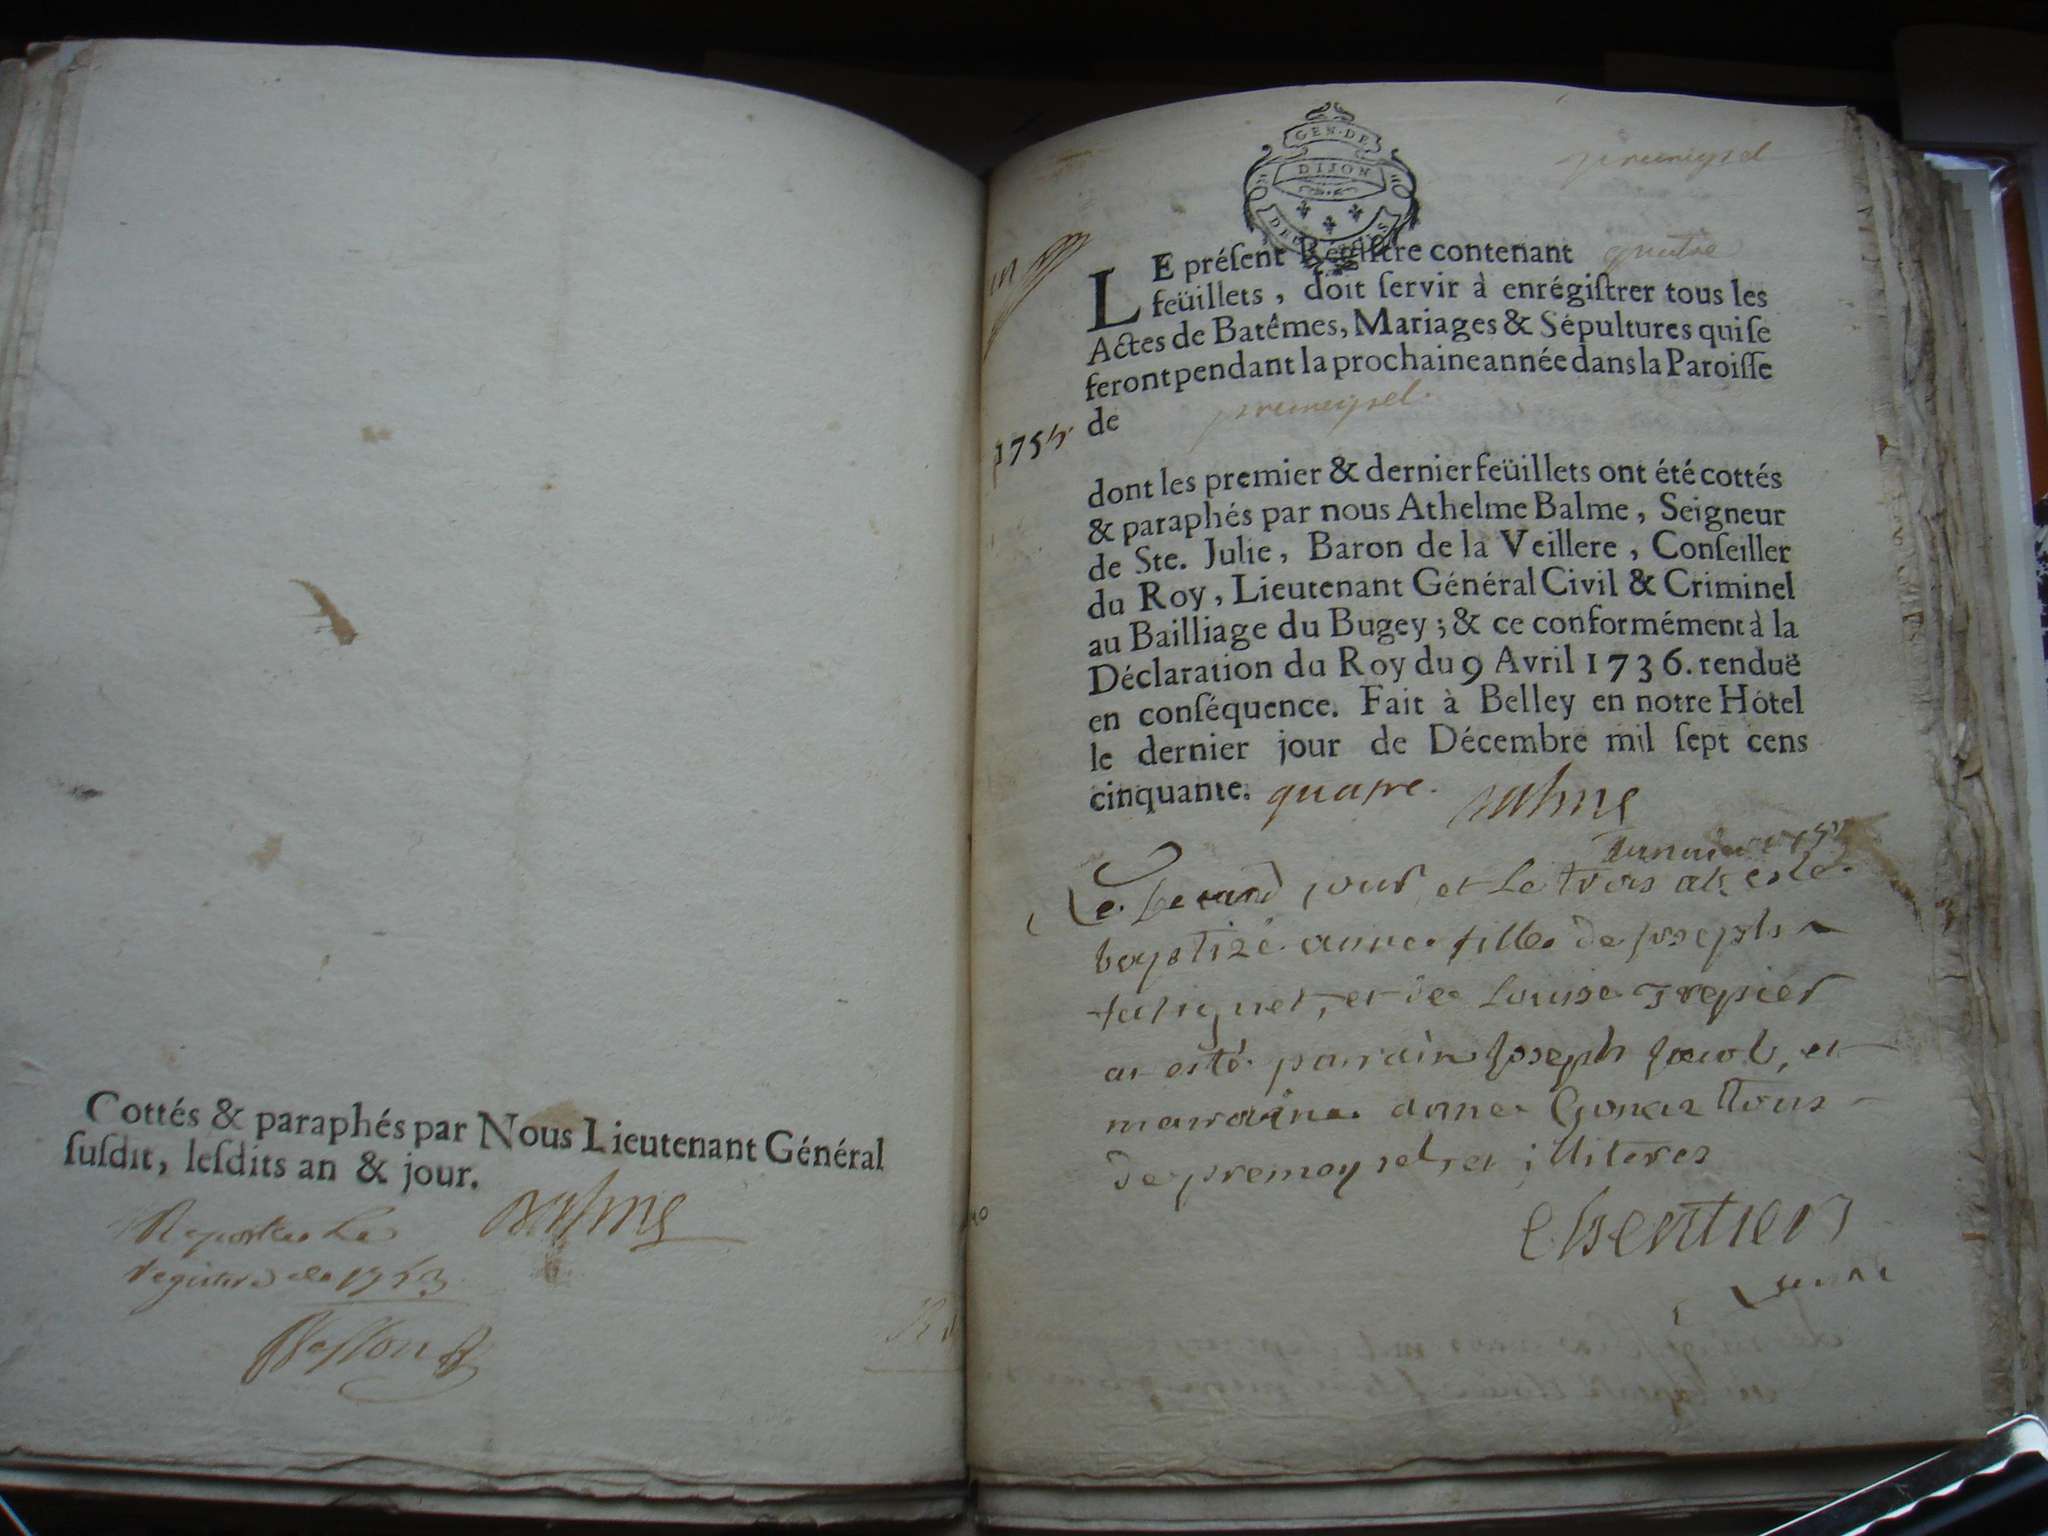 Cottés & paraphés par Nous Lieutenant Général
ſuſdit, leſdits an & jour.
Balme
registre de 1753
GEN. DE
DIJON
premeysel
LE préſent Régiſtre contenant quatre
feüillets, doit ſervir à enrégiſtrer tous les
Actes de Batêmes, Mariages & Sépultures qui ſe
feront pendant la prochaine année dans la Paroiſſe
de premeysel.
175
dont les premier & dernier feüillets ont été cottés
& paraphés par nous Athelme Balme, Seigneur
de Ste. Julie, Baron de la Veillere, Conſeiller
du Roy, Lieutenant Général Civil & Criminel
au Bailliage du Bugey; & ce conformément à la
Déclaration du Roy du 9 Avril 1736. renduë
en conſéquence. Fait à Belley en notre Hôtel
le dernier jour de Décembre mil ſept cens
cinquante. quatre. Balme
Le second jour et le trois a este
baptizé anne fille de joseph
et de Louise Trepier
a esté parrain Joseph Jacob, et
marraine anne tous
de premeysel et illiteres